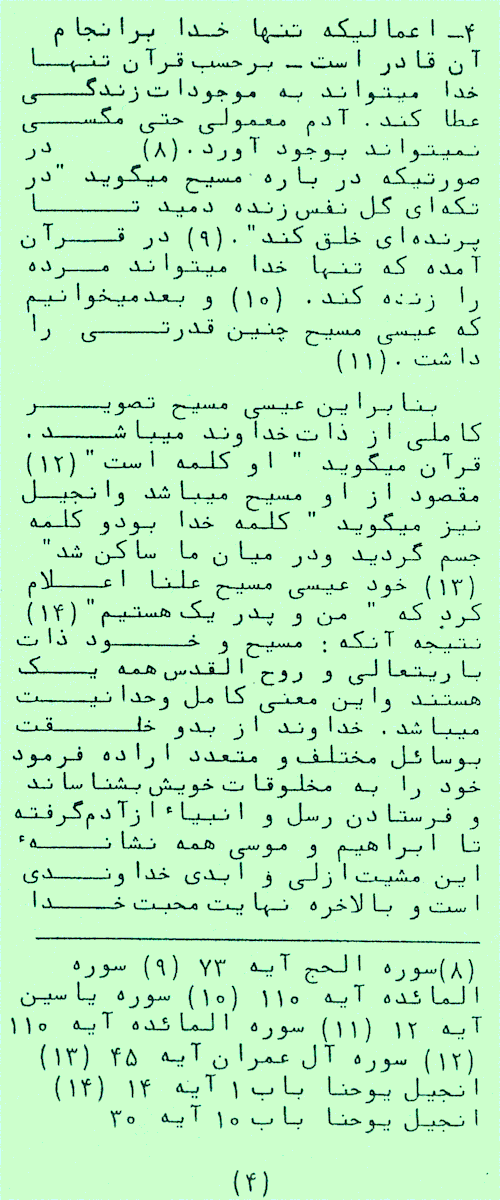 ۴ـ اعمالیکه تنها خدا برانجام
آن قادر است ـ برحسب قرآن تنهـا
خدا میتواند به موجودات زندگـــی
عطا کند. آدم معمولی حتی مگســـی
نمیتواند بوجود آورد. (۸) در
صورتیکه در باره مسیح میگوید "در
تکه‌ای گل نفس زنده دمید تـــا
پرنده‌ای خلق کند". (۹) در قـــرآن
آمده که تنها خدا میتواند مــرده
را زنده کند. (۱۰) و بعد میخوانیم
که عیسی مسیح چنین قدرتـــی را
داشت. (۱۱)
بنابراین عیسی مسیح تصویـــر
کاملی از ذات خداوند میباشـــد.
قرآن میگوید " او کلمه است" (۱۲)
مقصود از او مسیح میباشد وانجیـل
نیز میگوید " کلمه خدا بودو کلمه
جسم گردید ودر میان ما ساکن شد"
(۱۳) خود عیسی مسیح علنا اعـــلام
کرد که " من و پدر یک هستیم" (۱۴)
نتیجه آنکه : مسیح و خـــود ذات
باریتعالی و روح القدس همه یـــک
هستند واین معنی کامل وحدانیــت
میباشد. خداوند از بدو خلـــقت
بوسائل مختلف و متعدد اراده فرمود
خود را به مخلوقات خویش بشناساند
و فرستادن رسل و انبیاء ازآدم گرفته
تا ابراهیم و موسی همه نشانـــهء
این مشیت ازلی و ابدی خداونـــدی
است و بالاخره نهایت محبت خـــدا
(۸) سوره الحج آیه ۷۳ (۹) سوره
المائده آیه ۱۱۰ (۱۰) سوره یاسین
آیه ۱۲ (۱۱) سوره المائده آیه ۱۱۰
(۱۲) سوره آل عمران آیه ۴۵ (۱۳)
انجیل یوحنا باب ۱ آیه ۱۴ (۱۴)
انجیل یوحنا باب ۱۰ آیه ۳۰
(۴)